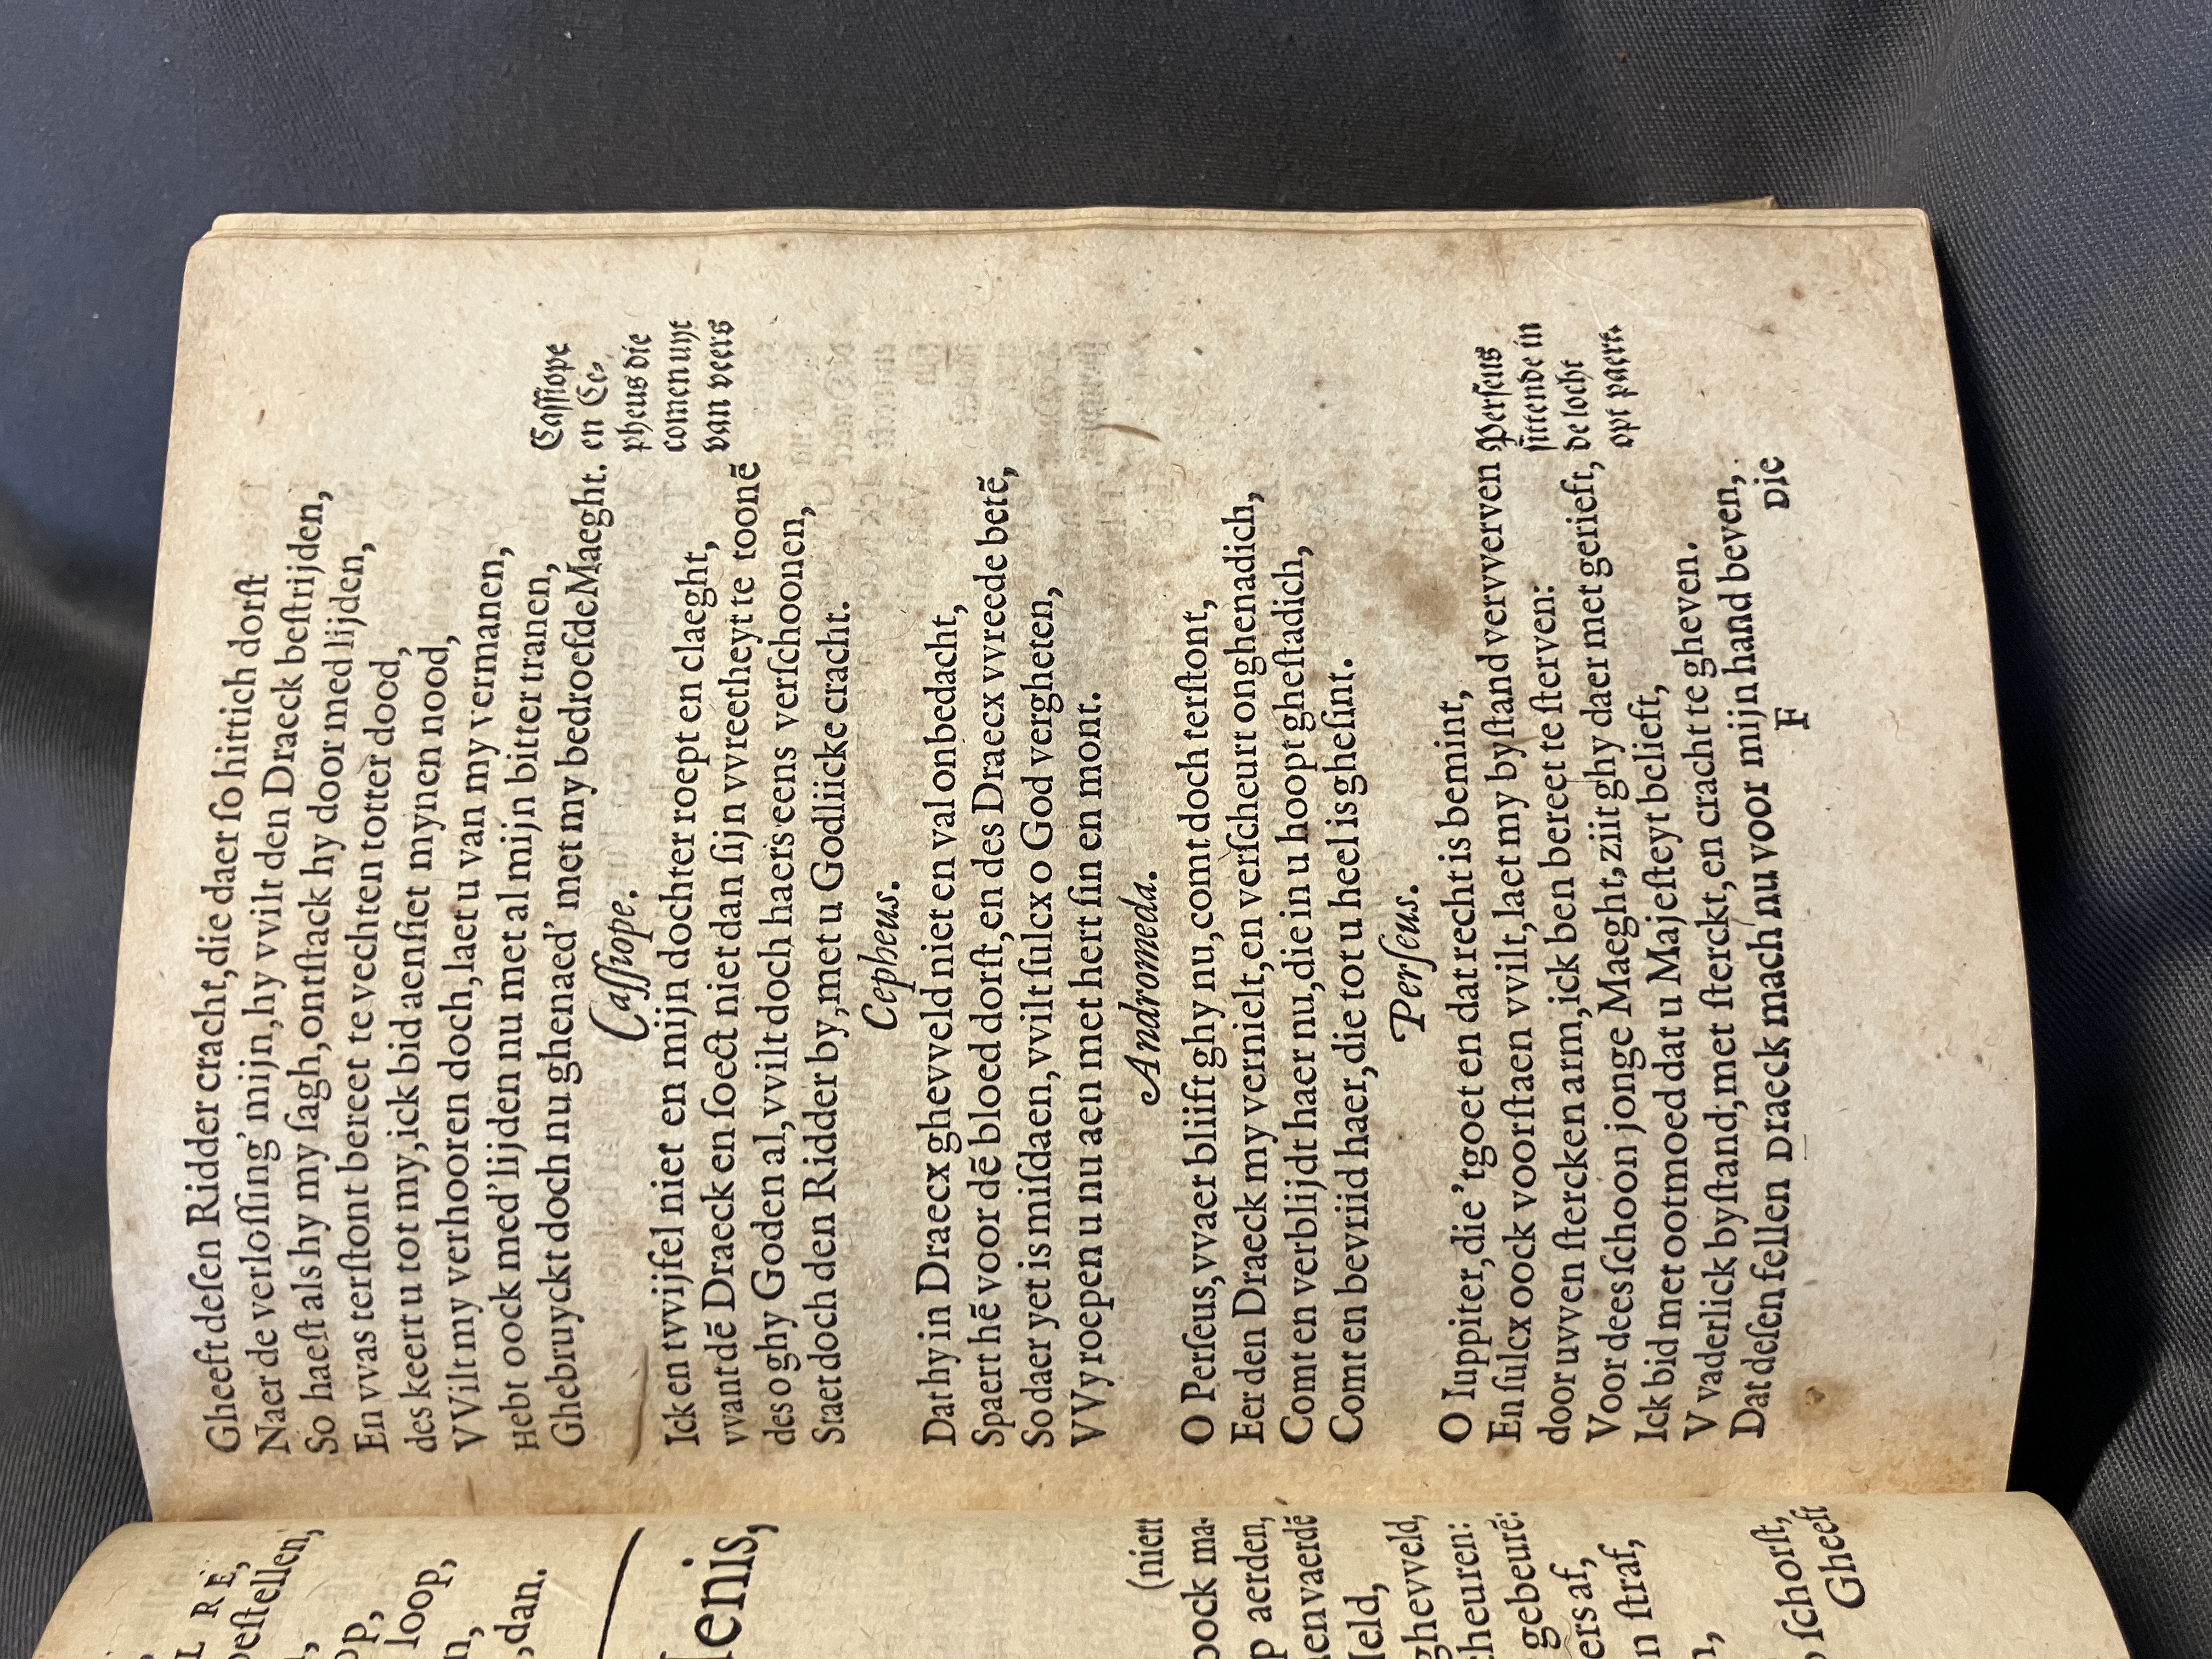 L RE,
oestellen,
op,
loop,
,dan.
lenis,
(niert
oock ma-
p aerden,
aenvaerdē
ghevveld,
gebeurē:
ers af,
n straf,
schorst,
Gheeft
Gheeft deſen Ridder cracht,die daer ſo hittich dorſt
Naer de verloſſing' mijn,hy vvilt den Draeck beſtrijden,
So haeſt als hy my ſagh,ontſtack hy door med lijden,
En vvas terſtont bereet te vechten totter dood,
des keert u tot my,ick bid aenſiet mynen nood,
VVilt my verhooren doch,laet u van my vermanen,
Hebt oock med'lijden nu met al mijn bitter tranen,
Ghebruyckt doch nu ghenaed' met my bedroefde Maeght.
Caſſiope
en Ce-
pheus die
comen uyt
van veers
Caſſiope.
Ick en tvvijfel niet en mijn dochter roept en claeght,
vvant dē Draeck en ſoect niet dan ſijn vvreetheyt te toonē
des o ghy Goden al,vvilt doch haers eens verſchoonen,
Staet doch den Ridder by,met u Godliicke cracht.
Cepheus.
Dat hy in Draecx ghevveld niet en val onbedacht,
Spaert hē voor dē bloed dorſt,en des Draecx vvreede betē,
So daer yet is miſdaen,vvilt ſulcx o God vergheten,
VVy roepen u nu aen met hert ſin en mont.
Andromeda.
O Perſeus,vvaer bliift ghy nu,comt doch terſtont,
Eer den Draeck my vernielt,en verſcheurt onghenadich,
Comt en verblijdt haer nu,die in u hoopt gheſtadich,
Comt en bevriid haer,die tot u heel is gheſint.
Perſeus.
O Iuppiter,die 'tgoet en dat recht is bemint,
En ſulcx oock voorſtaen vvilt,laet my byſtand vervverven
door uvven ſtercken arm,ick ben bereet te ſterven:
Voor dees ſchoon jonge Maeght,ziit ghy daer met gerieft,
Ick bid met ootmoed dat u Majeſteyt belieft,
V vaderlick byſtand,met ſterckt,en cracht te gheven.
Dat deſen fellen Draeck mach nu voor mijn hand beven,
Perſeus
ſittende in
de locht
opt paert.
F
Die